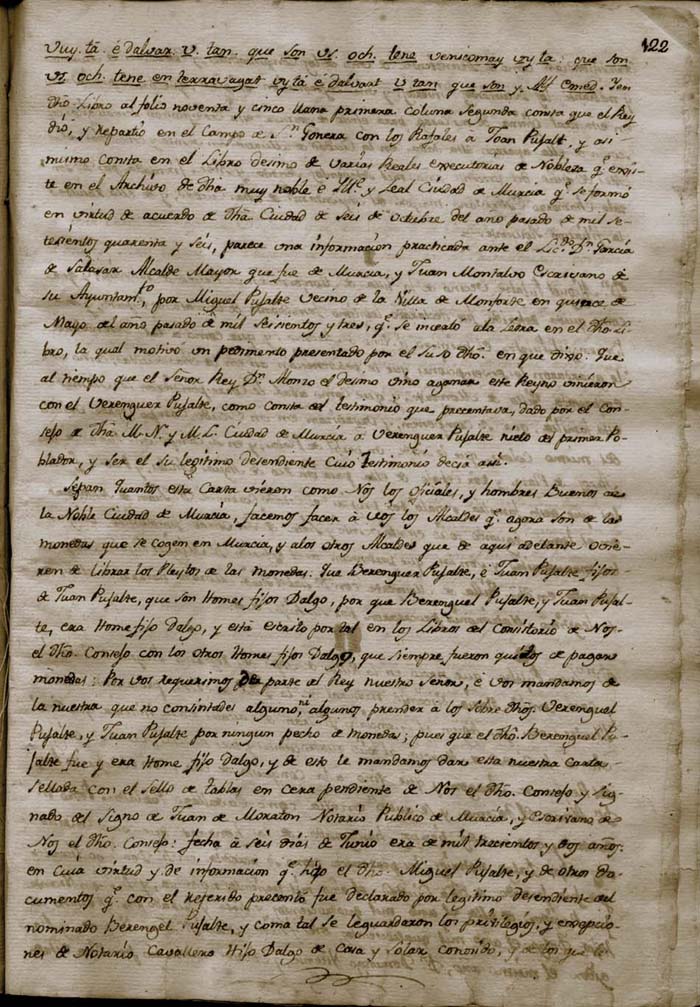 122
vuy. tā. é dalvar. v. tan. que son vs. och. tene venicomay vyta: que son
vs. och. tene en terravayat vytā é dalvart v tan que son y. Mf. Comed. Yen
dho. Libro al folio noventa y cinco llana primera coluna segunda consta que el Rey
dió, y repartió en el Campo de Sn. Gonera con los Rafales à Joan Pujalt, y asi
mismo consta en el Libro desimo de varias Reales executorias de Nobleza q. exis-
te en el Archivo de dha. muy noble é Ille. y Leal Ciudad de Murcia q. se formó
en virtud de acuerdo de dha. Ciudad de seis de octubre del año pasado de mil se-
tesientos quarenta y seis, parece una informacion practicada ante el Licdo. Dn. Garcia
de Salasar Alcalde Mayor que fue de Murcia, y Juan Montalvo Escrivano de
su Ayuntamto., por Miguel Pujalte vecino de la Villa de Monforte en quince de
Mayo del año pasado de mil seisientos y tres, q. se incertó ala letra en el dho. Li-
bro, la qual motivó un pedimento presentado por el suso dho. en que dixo: Que
al tiempo que el Señor Rey Dn. Alonso el desimo vino aganar este Reyno vinieron
con el Verenguer Pujalte, como consta del testimonio que precentava, dado por el Con-
sejo de dha. M. N. y M. L. Ciudad de Murcia a Verenguer Pujalte nieto del primer Po-
blador, y ser el su legitimo desendiente Cuio testimonio decia asi.
Sepan Quantos esta Carta vieren como Nos los oficiales, y hombres Buenos de
la Noble Ciudad de Murcia, facemos facer à vos los Alcaldes q. agora son de las
monedas que se cogen en Murcia, y alos otros Alcaldes que de aqui adelante vinie-
ren de librar los Pleytos de las monedas: Que Berenguer Pujalte, é Juan Pujalte fijos
de Juan Pujalte, que son Homes fijos Dalgo, por que Berenguel Pujalte, y Juan Pujal-
te, era Home fijo Dalgo, y está escrito por tal en los Libros del Consistorio de Nos
el dho. Consejo con los otros Homes fijos Dalgo, que siempre fueron quitos de pagar
monedas: Por vos requerimos de parte al Rey nuestro Señor, é vos mandamos de
la nuestra que no consintades alguno, ni algunos prender à los sobre dhos. Verenguel
Pujalte, y Juan Pujalte por ningun pecho de monedas; pues que el dho. Berenguel Pu-
jalte fue y era Home fijo Dalgo, y de esto le mandamos dar esta nuestra Carta
sellada con el sello de tablas en cera pendiente de Nos el dho. Consejo y sig-
nado del signo de Juan de Moraton Notario Publico de Murcia, y Escrivano de
Nos el dho. Consejo: fecha à seis dias de Junio era de mil trecientos y dos años:
en cuia virtud y de informacion q. hizo el dho. Miguel Pujalte, y de otros do-
cumentos q. con el referido precentó fue declarado por legitimo desendiente del
nominado Berengel Pujalte, y como tal se leguardaron los privilegios, y exepcio-
nes de Notario Cavallero Hijo Dalgo de Casa y Solar conosido, y de los que le